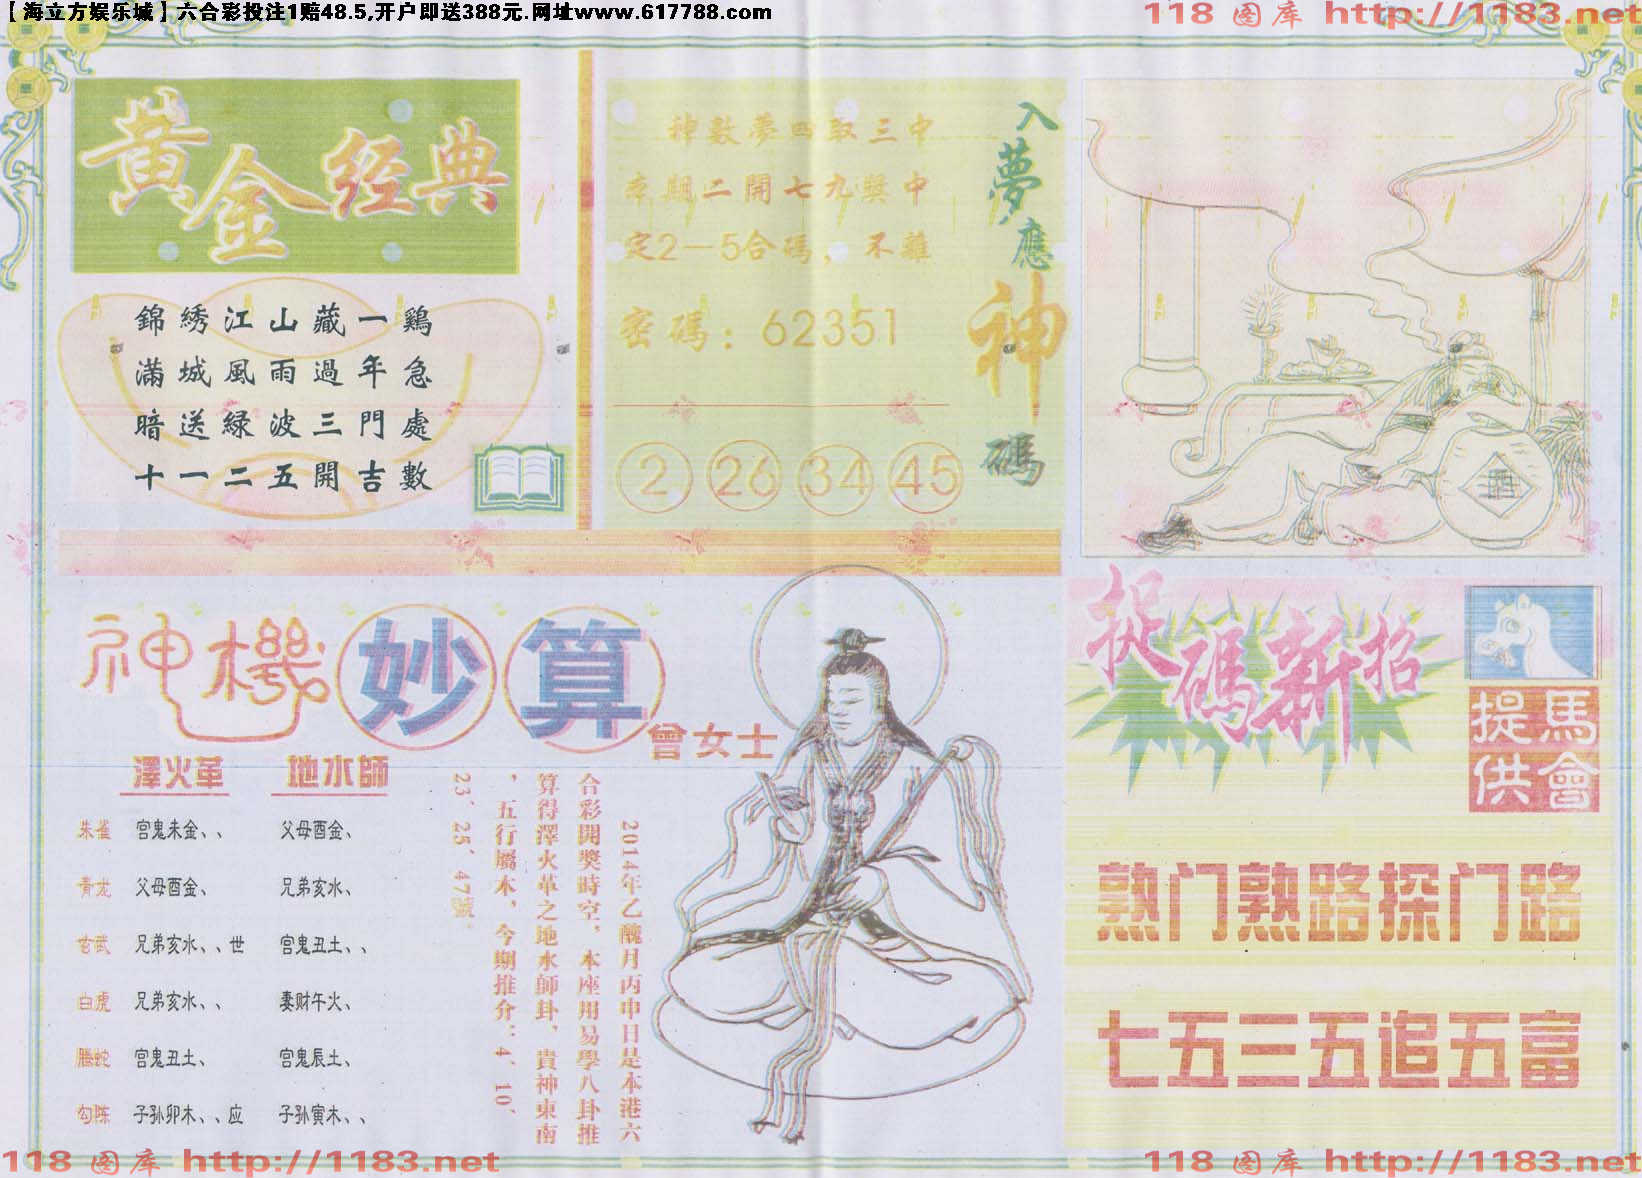 【海立方娱乐城】六合彩投注1赔48.5,开户即送388元.网址www.617788.com
118 图库 http://1183.net
黃金经典
錦綉江山藏一鷄
滿城風雨過年急
暗送緑波三門處
十一二五開吉數
神數夢四取三中
本期二開七九獎中
定2—5合碼，不離
密碼：62351
2 26 34 45
入夢應神碼
神機妙算
曾女士
澤火革 地水師
朱雀 宫鬼未金、、 父母酉金、
青龙 父母酉金、 兄弟亥水、
玄武 兄弟亥水、、世 宫鬼丑土、、
白虎 兄弟亥水、、 妻财午火、
騰蛇 宫鬼丑土、 宫鬼辰土、
勾陈 子孙卯木、、应 子孙寅木、、
2014年乙醜月丙申日是本港六
合彩開獎時空，本座用易學八卦推
算得澤火革之地水師卦，貴神東南
，五行屬木，今期推介：4、10、
23、25、47號。
捉碼新招
馬會
提供
熟门熟路探门路
七五三五追五富
118 图库 http://1183.net
118 图库 http://1183.net